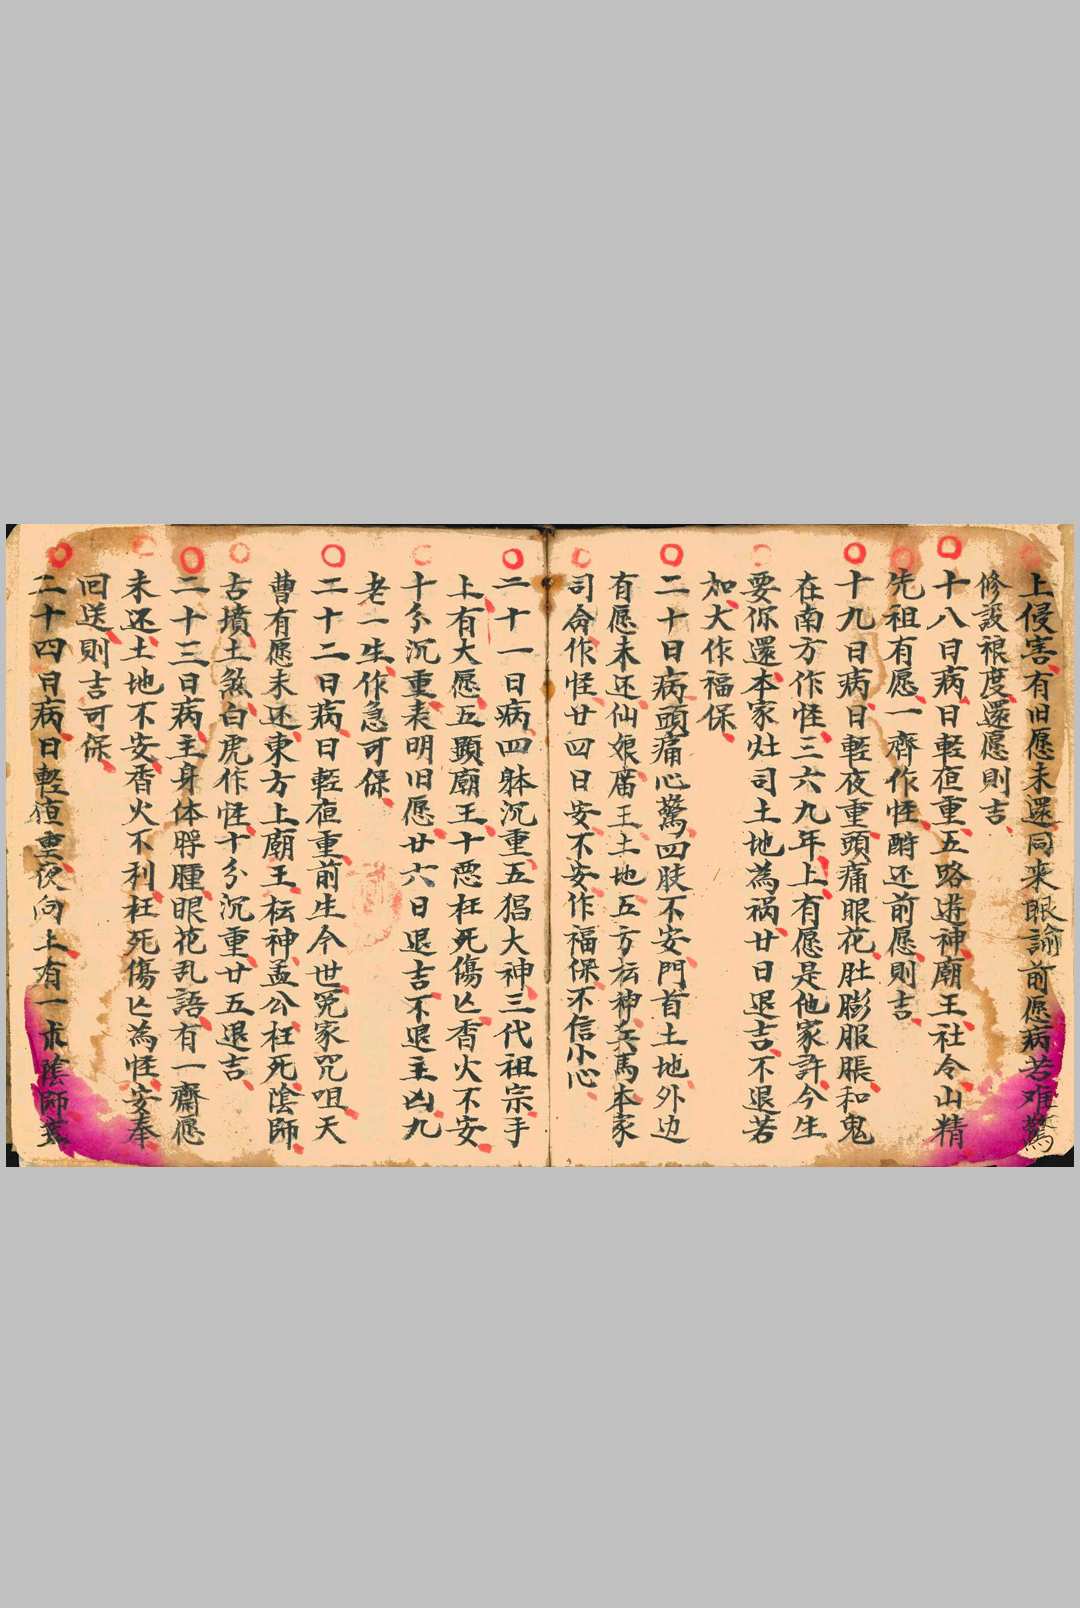 上侵害有旧愿未還同来眼諭前愿病若难驚
修設禳度還愿則吉
十八日病日軽夜重五路逰神廟王社令山精
先祖有愿一齊作怪酧还前愿則吉
十九日病日軽夜重頭痛眼花肚膨服脹和鬼
在南方作怪三六九年上有愿是他家許今生
要你還本家灶司土地為祸廿日退吉不退若
加大作福保
二十日病頭痛心驚四肢不安門首土地外边
有愿未还仙娘庿王土地五方坛神兵馬本家
司命作怪廿四日安不安作福保不信小心
二十一日病四躰沉重五猖大神三代祖宗手
上有大愿五顕廟王十悪枉死傷亡香火不安
十分沉重表明旧愿廿六日退吉不退主凶九
老一生作急可保
二十二日病日軽夜重前生今世冤家咒咀天
曹有愿未还東方上廟王坛神孟公枉死陰師
古墳土煞白虎作怪十分沉重廿五退吉
二十三日病主身体腫眼花乱語有一齋愿
未还土地不安香火不利枉死傷亡為怪安奉
回送則吉可保
二十四日病日軽夜重夜向上有一陰師